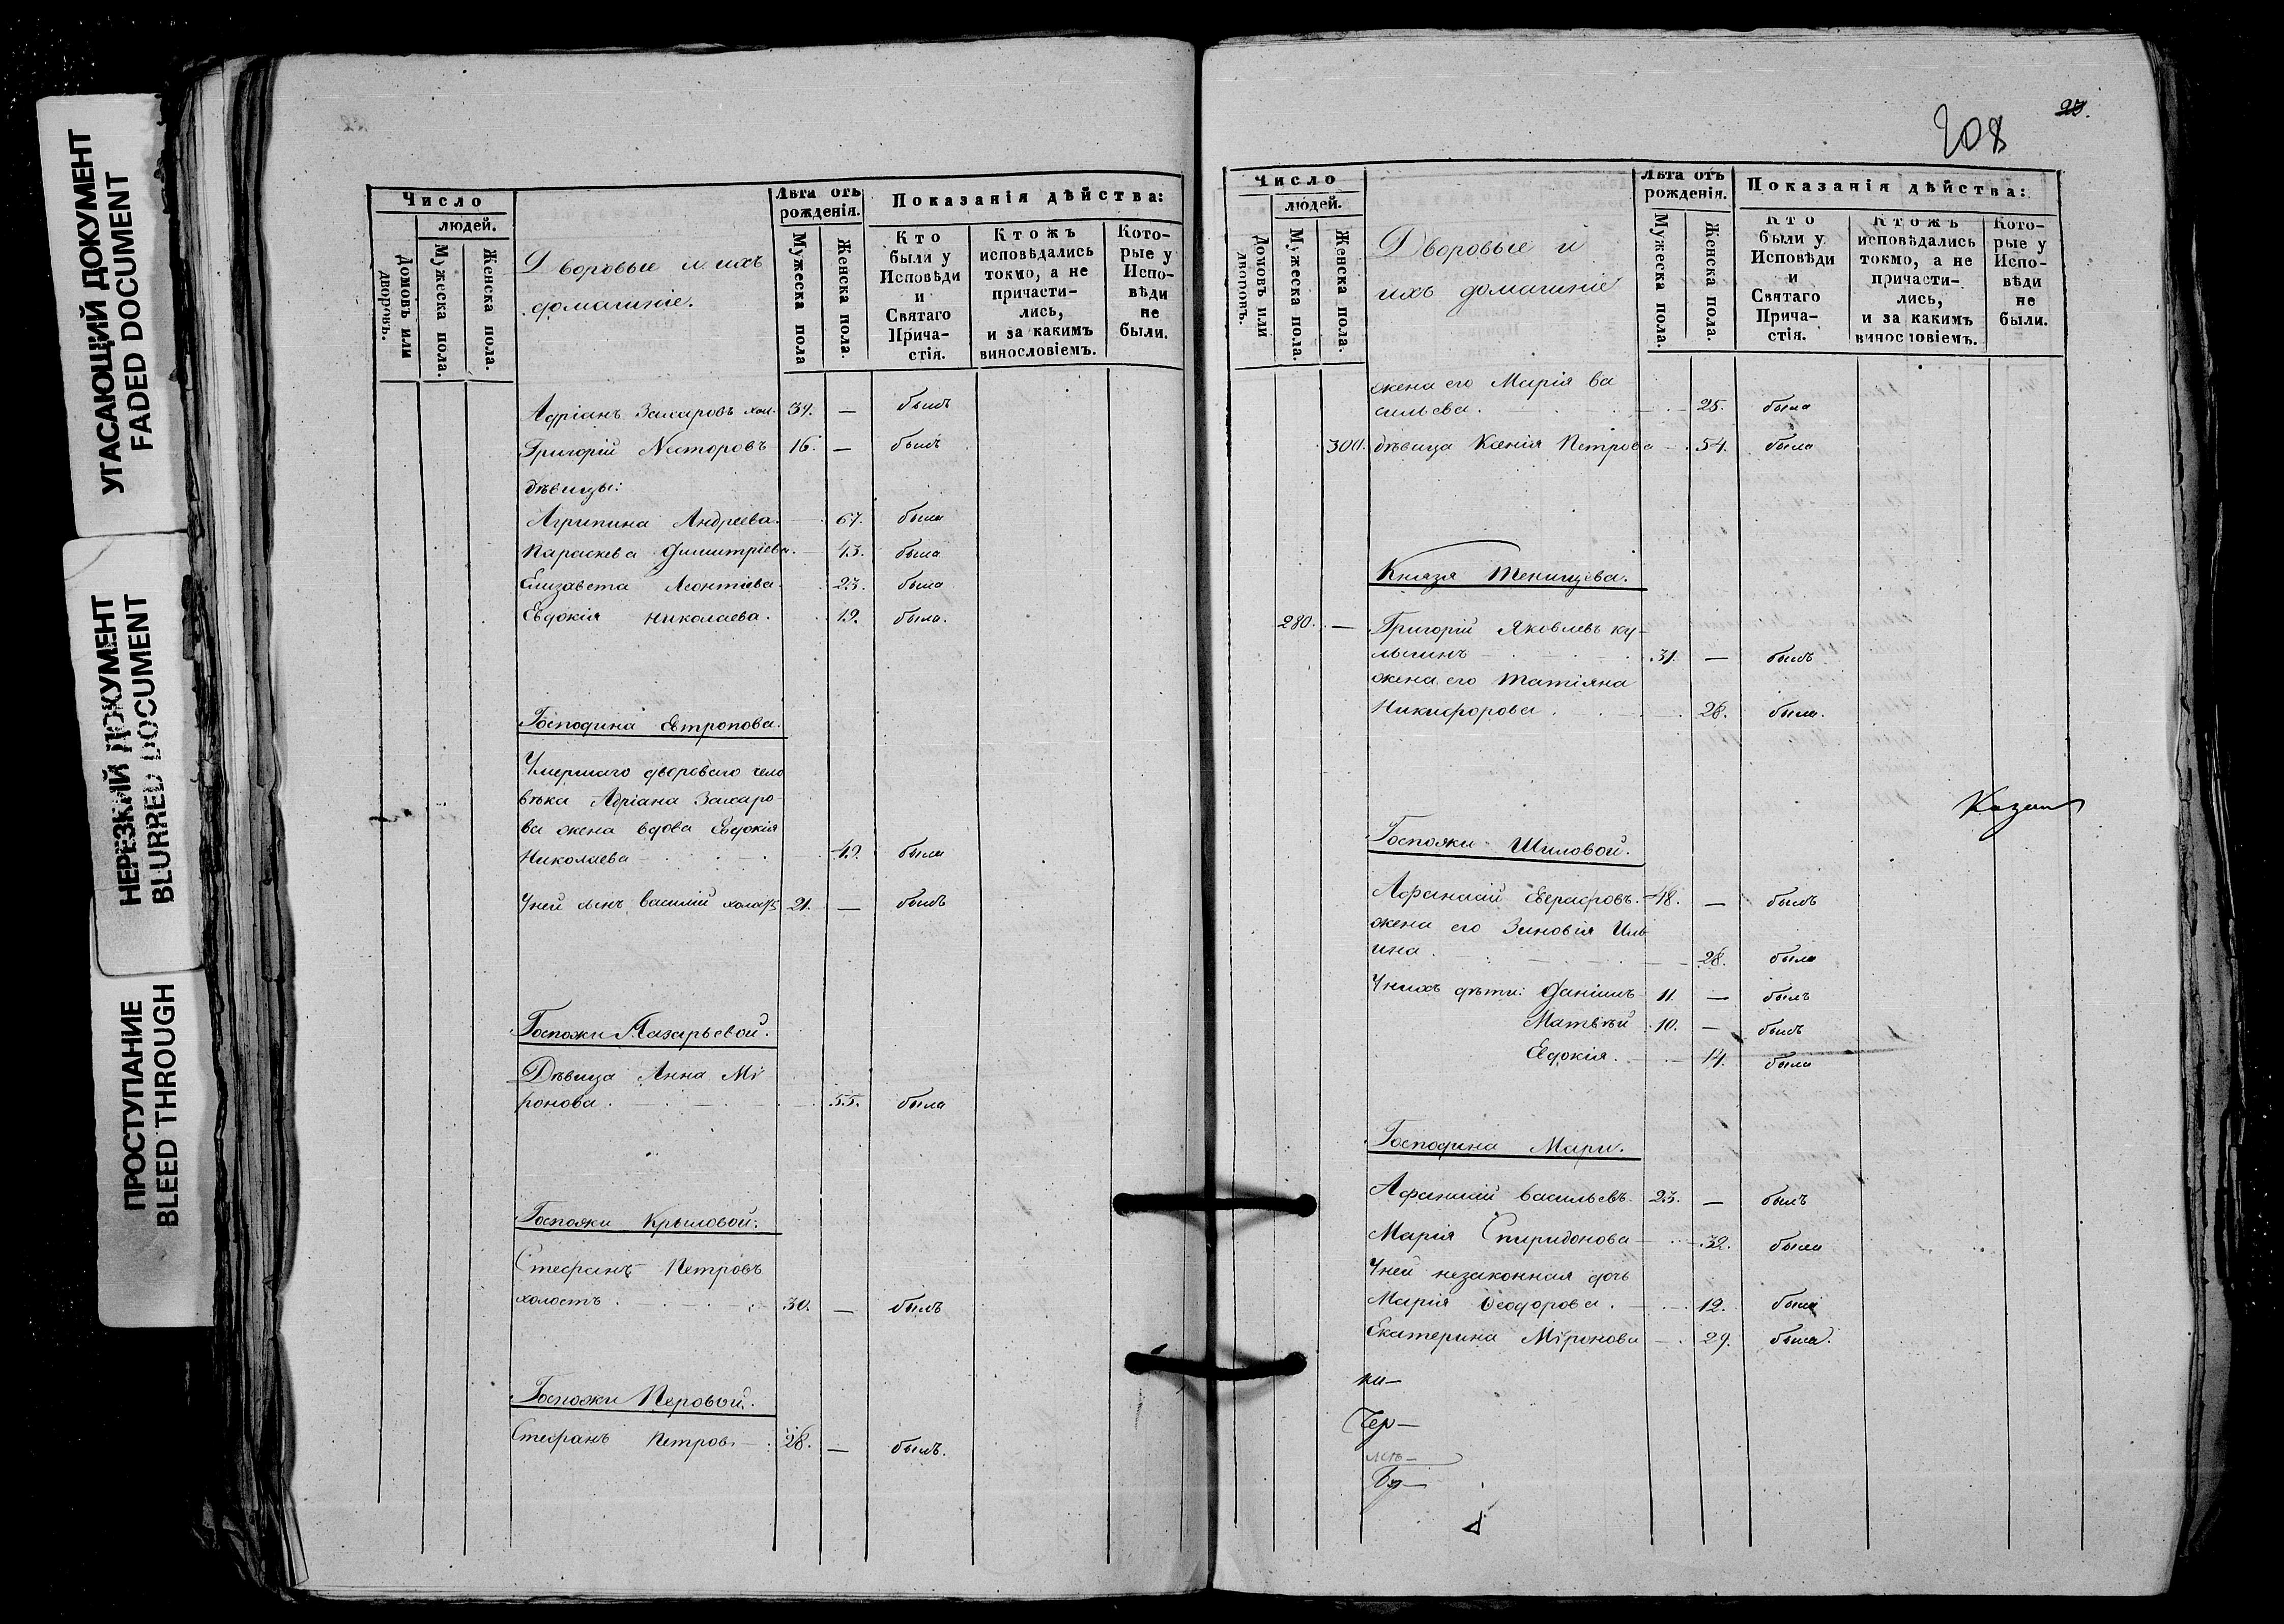 УГАСАЮЩИЙ ДОКУМЕНТ
FADED DOCUMENT
НЕРЕЗКИЙ ДОКУМЕНТ
BLURRED DOCUMENT
ПРОСТУПАНИЕ
BLEED THROUGH
Число
людей.
Домовъ или дворовъ.
Мужеска пола.
Женска пола.
Дворовые и ихъ
домашніе.
Лѣта отъ рожденія.
Мужеска пола
Женска пола.
Показанія дѣйства:
Кто были у Исповѣди и Святаго Прича-стія.
Ктожъ исповѣдались токмо, а не причасти-лись, и за какимъ винословіемъ.
Кото-рые у Испо-вѣди не были.
Адріанъ Захаровъ хол. 39. — былъ
Григорій Несторовъ 16. — былъ
дѣвицы:
Агрипина Андреева. 67. была
Параскева Димитріева. 43. была
Елизавета Леонтіева. 23. была
Евдокія Николаева. 19. была.
Господина Евтропова.
Умершаго двороваго чело
вѣка Адріана Захаро
ва жена вдова Евдокія
Николаева 49. была
У ней сынъ Василій холостъ 21. — былъ
Госпожи Лазарьевой.
Дѣвица Анна Мі
ронова. 55. была
Госпожи Крыловой:
Стефанъ Петровъ
холостъ. 30. — былъ
Госпожи Перовой.
Стефанъ Петровъ 28. — былъ.
208
Число
людей.
Домовъ или дворовъ.
Мужеска пола.
Женска пола.
Дворовые и
ихъ домашніе
Лѣта отъ рожденія.
Мужеска пола.
Женска пола.
Показанія дѣйства:
Кто были у Исповѣди и Святаго Прича-стія.
Ктожъ исповѣдались токмо, а не причасти-лись, и за какимъ винословіемъ.
Кото-рые у Испо-вѣди не были.
жена его Марія Ва
сильева. 25. была
300. дѣвица Ксенія Петрова 54. была
Князя Тенишева.
280. — Григорій Яковлевъ Ку-
льгинъ 31. — былъ
жена его Татіяна
Никифорова. 28. была.
Госпожи Шиловой.
Афанасій Евграфовъ. 48. — былъ
жена его Зиновія Иль
ина. 28. была
У нихъ дѣти: Даніилъ 11. — былъ
Матвѣй 10. — былъ
Евдокія. 14. была
Господина Мари.
Афанасій Васильевъ 23. — былъ
Марія Спиридонова 32. была
У ней незаконная дочь
Марія Ѳеодорова. 12. была
Екатерина Міронова 29. была.